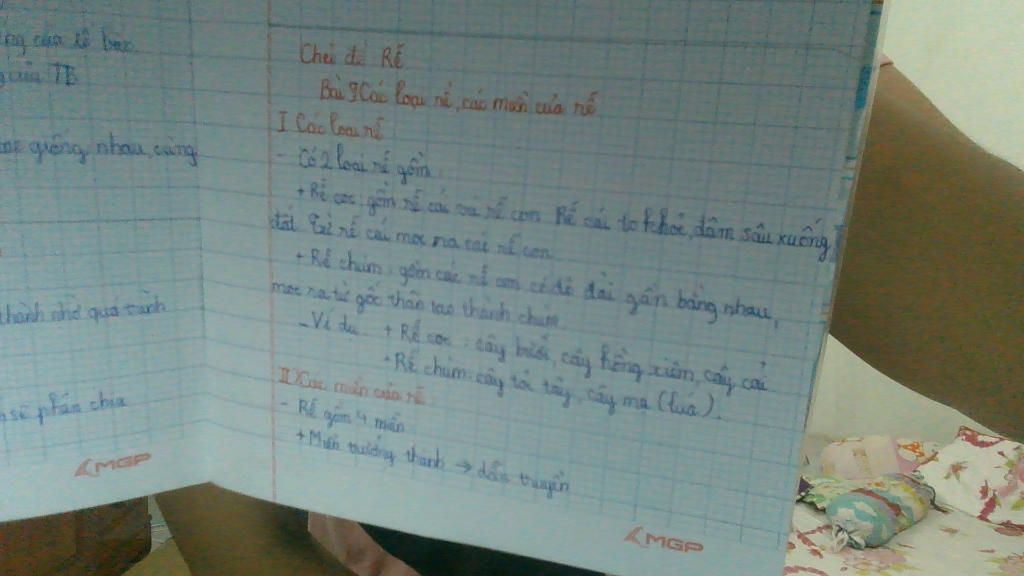 ng của tế bào
của TB
giống nhau, cùng
thành nhờ quá trình
sẽ phân chia
MGP
Chủ đề Rễ
Bài 9 Các loại rễ, các miền của rễ
I Các loại rễ
- Có 2 loại rễ gồm:
+ Rễ cọc: gồm rễ cái và rễ con. Rễ cái to khỏe, đâm sâu xuống
đất. Từ rễ cái mọc ra các rễ con.
+ Rễ chùm: gồm các rễ con có độ dài gần bằng nhau,
mọc ra từ gốc thân tạo thành chùm.
- Ví dụ + Rễ cọc: cây bưởi, cây hồng xiêm, cây cải
+ Rễ chùm: cây tỏi tây, cây mạ (lúa).
II) Các miền của rễ
- Rễ gồm 4 miền
+ Miền trưởng thành → dẫn truyền
MGP